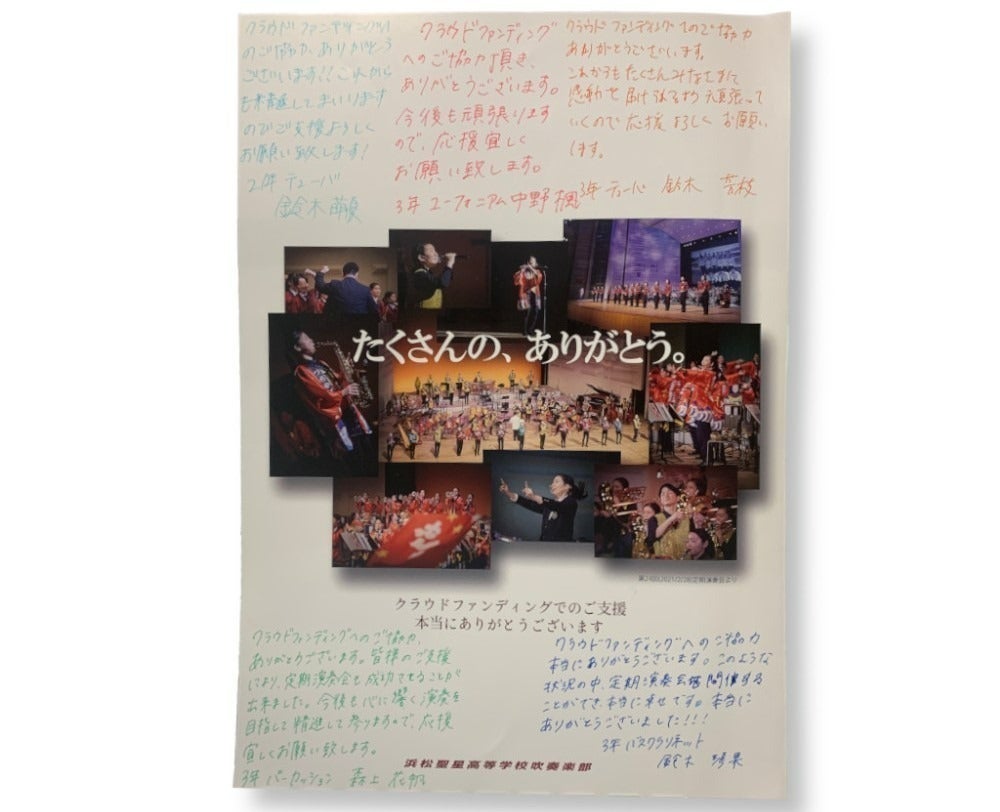 クラウドファンディング
のご協力、ありがとう
ございます!!これから
も精進してまいります
のでご支援よろしく
お願い致します!
2年 テューバ
鈴木
クラウドファンディング
へのご協力頂き、
ありがとうございます。
今後も頑張ります
ので、応援宜しく
お願い致します。
3年 ユーフォニアム 中野 楓
クラウドファンディングでのご協力
ありがとうございます。
これからもたくさんみなさまに
感動を届けられるよう頑張って
いくので応援よろしくお願い
します。
3年 テューバ 鈴木
たくさんの、ありがとう。
定期演奏会より
クラウドファンディングでのご支援
本当にありがとうございます
クラウドファンディングへのご協力、
ありがとうございます。皆様のご支援
により、定期演奏会を成功させることが
出来ました。今後も心に響く演奏を
目指して精進して参りますので、応援
宜しくお願い致します。
3年 パーカッション 森上
クラウドファンディングへのご協力
本当にありがとうございます。このような
状況の中、定期演奏会を開催する
ことができ、本当に幸せです。本当に
ありがとうございました!!!
3年 バスクラリネット
鈴木
浜松聖星高等学校吹奏楽部